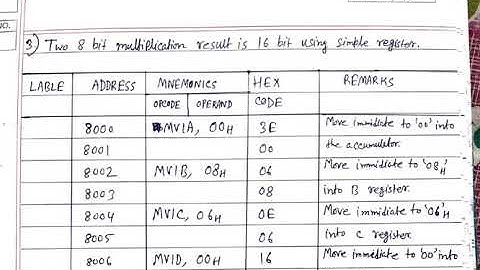 NO.
3) Two 8 bit multiplication result is 16 bit using simple register.
LABLE ADDRESS MNEMONICS HEX CODE REMARKS
OPCODE OPERAND
8000 MVIA, 00H 3E Move immidiate to '00' into
8001 00 the accumulator.
8002 MVIB, 08H 06 Move immidiate to '08H'
8003 08 into B register.
8004 MVIC, 06H 0E Move immidiate to '06'H
8005 06 into C register
8006 MVID, 00H 16 Move immidiate to '00' into